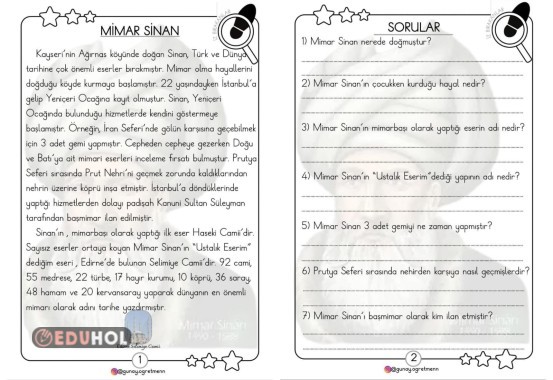 MİMAR SİNAN
Kayseri'nin Ağırnas köyünde doğan Sinan, Türk ve Dünya
tarihine çok önemli eserler bırakmıştır. Mimar olma hayallerini
doğduğu köyde kurmaya başlamıştır. 22 yaşındayken İstanbul'a
gelip Yeniçeri Ocağına kayıt olmuştur. Sinan, Yeniçeri
Ocağında bulunduğu hizmetlerde kendini göstermeye
başlamıştır. Örneğin, İran Seferi'nde gölün karşısına geçebilmek
için 3 adet gemi yapmıştır. Cepheden cepheye gezerken Doğu
ve Batı'ya ait mimari eserleri inceleme fırsatı bulmuştur. Prutya
Seferi sırasında Prut Nehri'ni geçmek zorunda kaldıklarından
nehrin üzerine köprü inşa etmiştir. İstanbul'a döndüklerinde
yaptığı hizmetlerden dolayı padişah Kanuni Sultan Süleyman
tarafından başmimar ilan edilmiştir.
Sinan'ın , mimarbaşı olarak yaptığı ilk eser Haseki Camii'dir.
Sayısız eserler ortaya koyan Mimar Sinan'ın "Ustalık Eserim"
dediğim eseri , Edirne'de bulunan Selimiye Camii'dir. 92 cami,
55 medrese, 22 türbe, 17 hayır kurumu, 10 köprü, 36 saray,
48 hamam ve 20 kervansaray yaparak dünyanın en önemli
mimarı olarak adını tarihe yazdırmıştır.
EDUHOL
Mimar Sinan
1
@gunay.ogretmenn
SORULAR
1) Mimar Sinan nerede doğmuştur?
2) Mimar Sinan'ın çocukken kurduğu hayal nedir?
3) Mimar Sinan'ın mimarbaşı olarak yaptığı eserin adı nedir?
4) Mimar Sinan'ın "Ustalık Eserim"dediği yapının adı nedir?
5) Mimar Sinan 3 adet gemiyi ne zaman yapmıştır?
6) Prutya Seferi sırasında nehirden karşıya nasıl geçmişlerdir?
7) Mimar Sinan'ı başmimar olarak kim ilan etmiştir?
Mimar Sinan
2
@gunay.ogretmenn